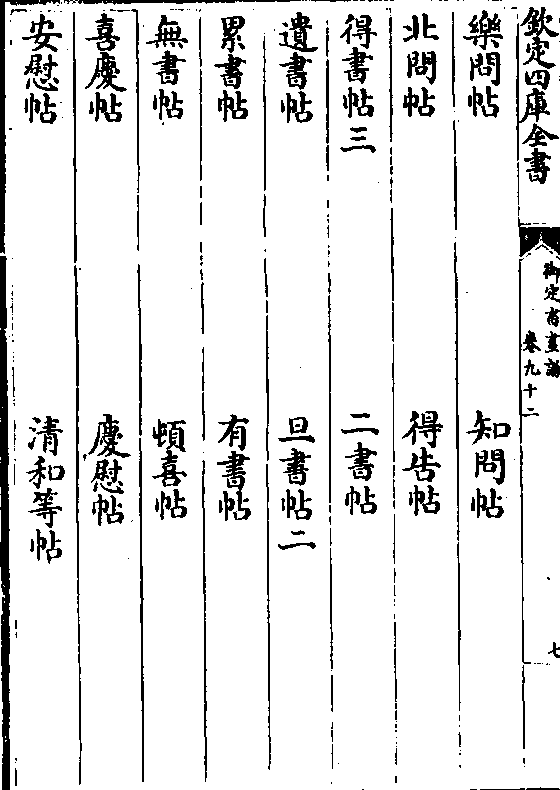 欽定四庫全書
御定書畫譜
卷九十二
七
樂問帖 知問帖
北問帖 得告帖
得書帖三 二書帖
遺書帖 旦書帖二
累書帖 有書帖
無書帖 頓喜帖
喜慶帖 慶慰帖
安慰帖 清和等帖